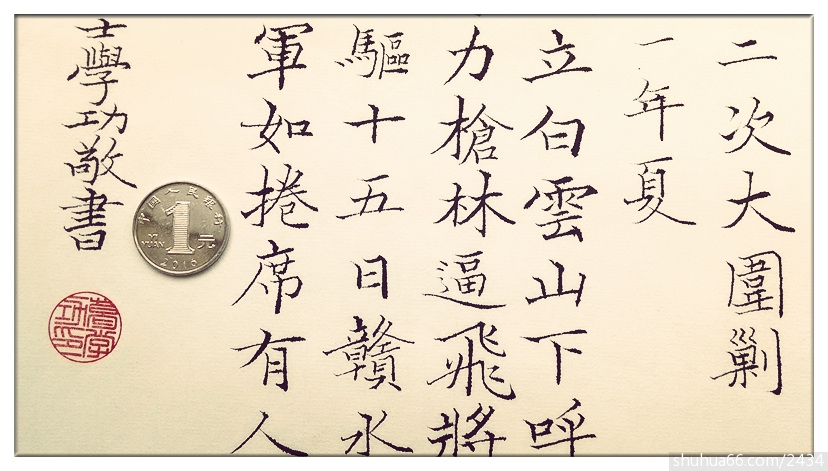 二次大圍剿
一年夏
立白雲山下呼
力槍林逼飛將
驅十五日贛水
軍如捲席有人
學功敬書
中国人民银行
1元
YI YUAN
shuhua66.com/2434